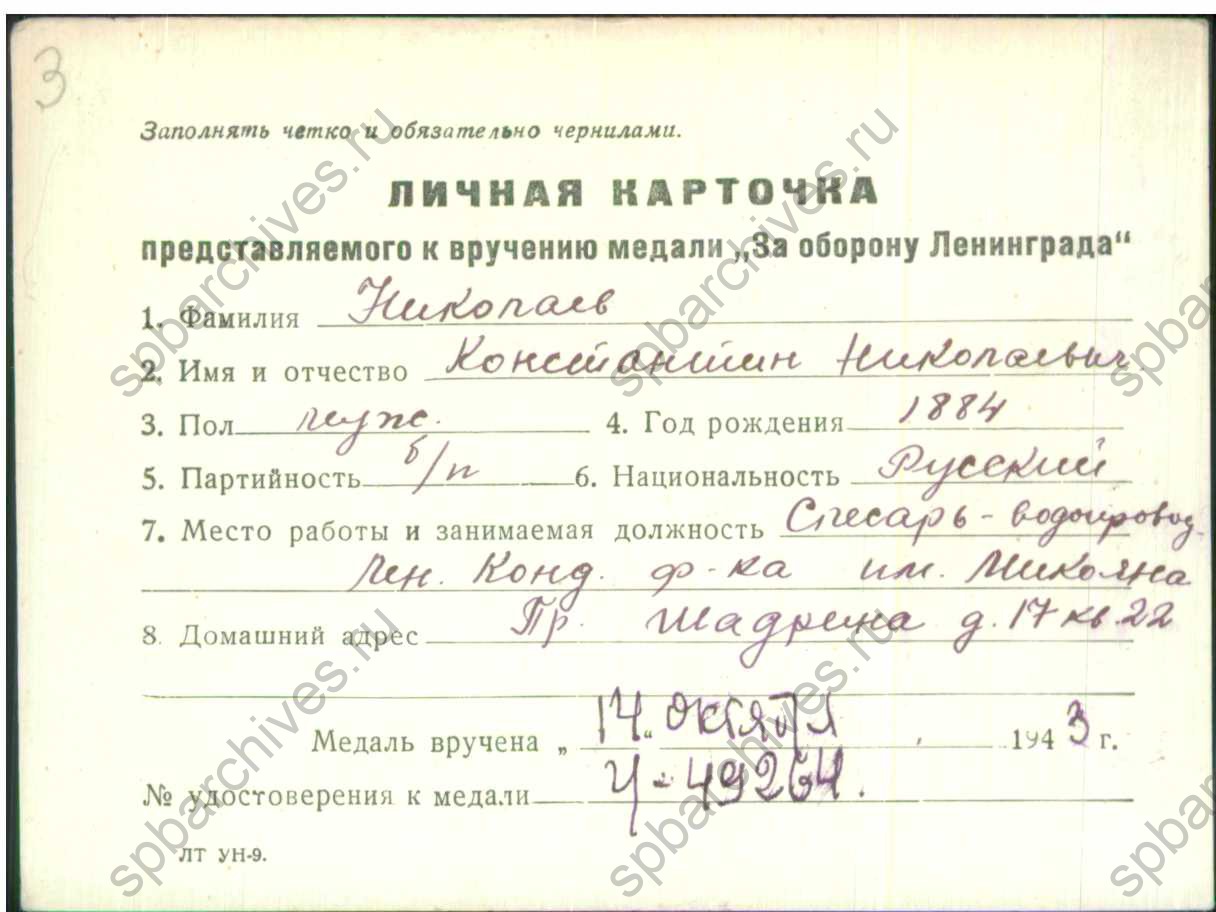 3
Заполнять четко и обязательно чернилами.
ЛИЧНАЯ КАРТОЧКА
представляемого к вручению медали „За оборону Ленинграда“
1. Фамилия Николаев
2. Имя и отчество Константин Николаевич
3. Пол муж. 4. Год рождения 1884
5. Партийность б/п 6. Национальность Русский
7. Место работы и занимаемая должность Слесарь - водопровод.
Лен. Конд. ф-ка им. Микояна
8. Домашний адрес Пр. Щадрина д. 17 кв. 22
Медаль вручена „14“ октября 1943 г.
№ удостоверения к медали Ч - 49264.
ЛТ УН-9.
spbarchives.ru
spbarchives.ru
spbarchives.ru
spbarchives.ru
spbarchives.ru
spbarchives.ru